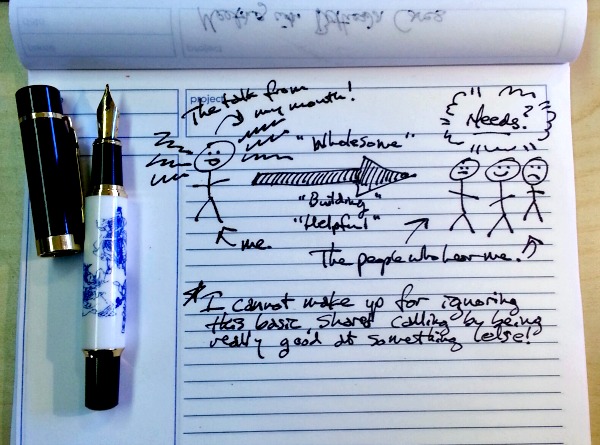 project
The talk from
my mouth!
Needs?
"Wholesome"
"Building"
"Helpful"
me
The people who hear me.
* I cannot make up for ignoring
this basic, shared calling by being
really good at something else!